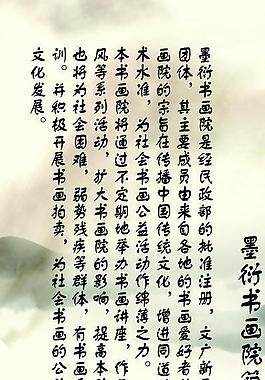 墨衍书画院
墨衍书画院是经民政部的批准注册，文广新
团体，其主要成员由来自各地的书画爱好者
画院的宗旨在传播中国传统文化，增进同道
术水准，为社会书画公益活动作绵薄之力。
本书画院将通过不定期地举办书画讲座，作
风等系列活动，扩大书画院的影响，提高本
也将为社会困难，弱势残疾等群体，有书画
训。并积极开展书画拍卖，为社会书画的公
文化发展。